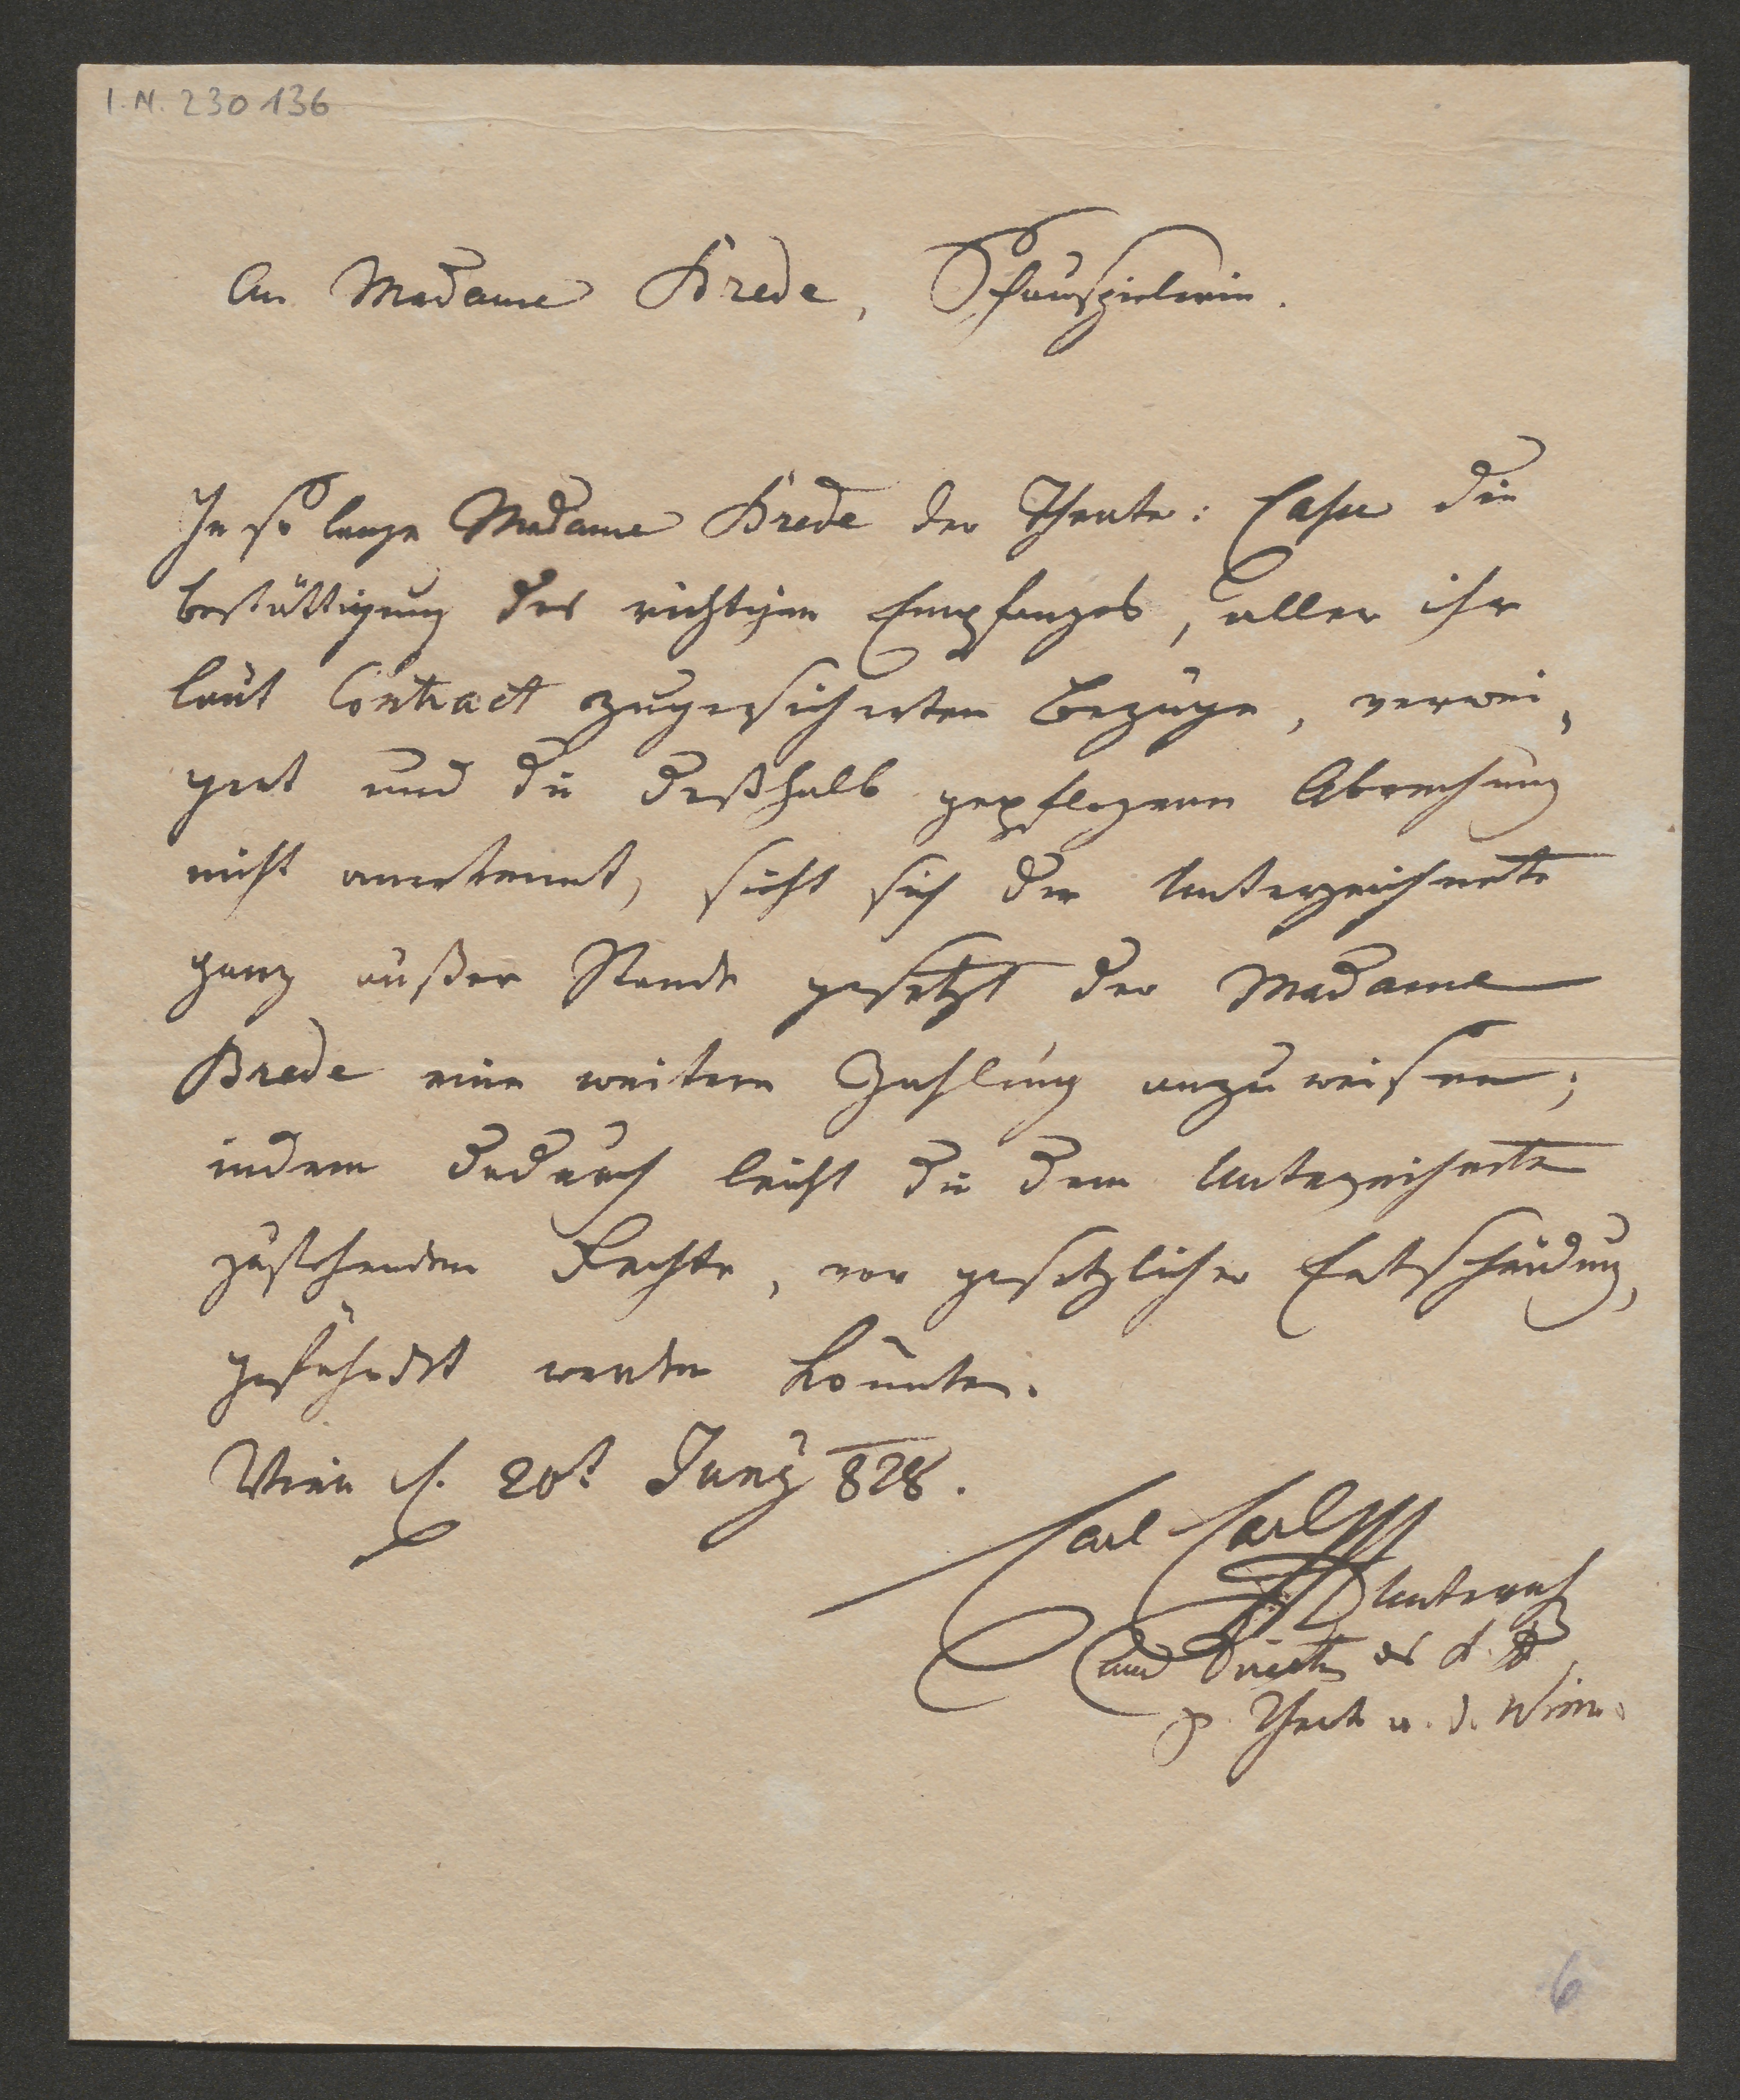 I.N. 230136
An Madame Brede, Schauspielerin.
In so lange Madame Brede der Theater: Casse die
bestättigung des richtigen Empfanges, aller ihr
laut Contract zugesicherten Bezüge, verwei,
gert und die deßhalb gepflogenen Abrechnung
nicht anerkennt, sieht sich der Unterzeichnete
ganz außer Stande gesetzt der Madame
Brede eine weitere Zahlung anzuweisen;
indem dadurch leicht die dem Unterzeichneten
zustehenden Rechte, vor gesetzlicher Entscheidung,
gefährdet werden könnten.
Wien d. 20t Juny 828.
Carl Carl
Unterneh
und Director des k. k.
p. Theat a. d. Wien.
6